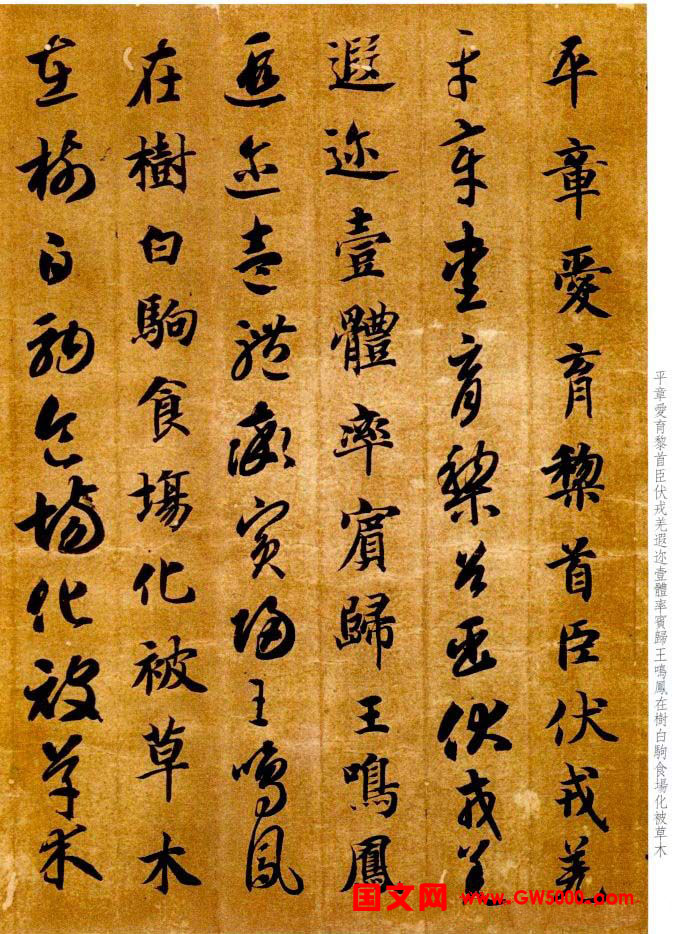 平章愛育黎首臣伏戎羌
平章愛育黎首臣伏戎羌
遐迩壹體率賓歸王鳴鳳
遐迩壹體率賓歸王鳴鳳
在樹白駒食場化被草木
在樹白駒食場化被草木
平章愛育黎首臣伏戎羌遐迩壹體率賓歸王鳴鳳在樹白駒食場化被草木
国文网 www.GW5000.com